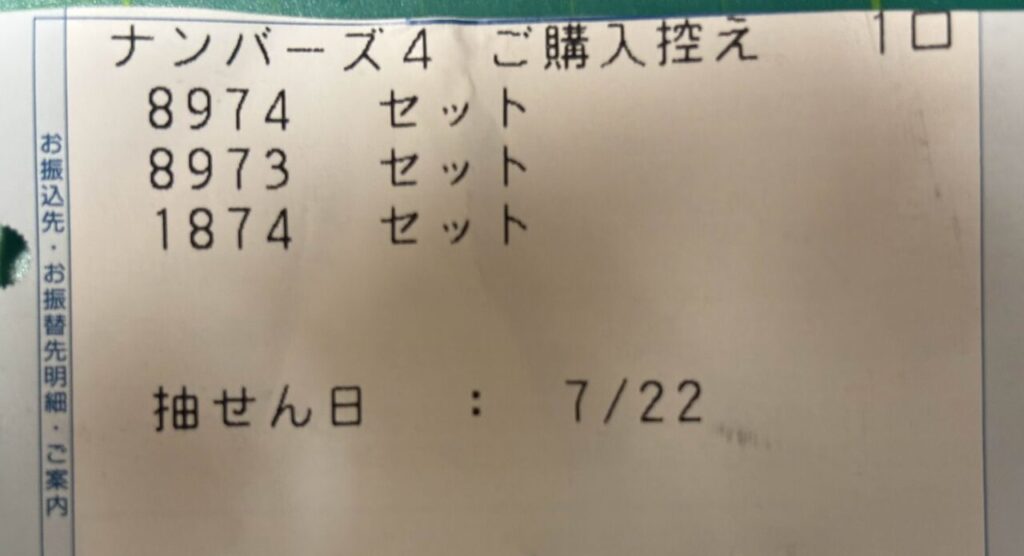 ナンバーズ4 ご購入控え 1口
8974 セット
8973 セット
1874 セット
抽せん日 : 7/22
お振込先・お振替先明細・ご案内